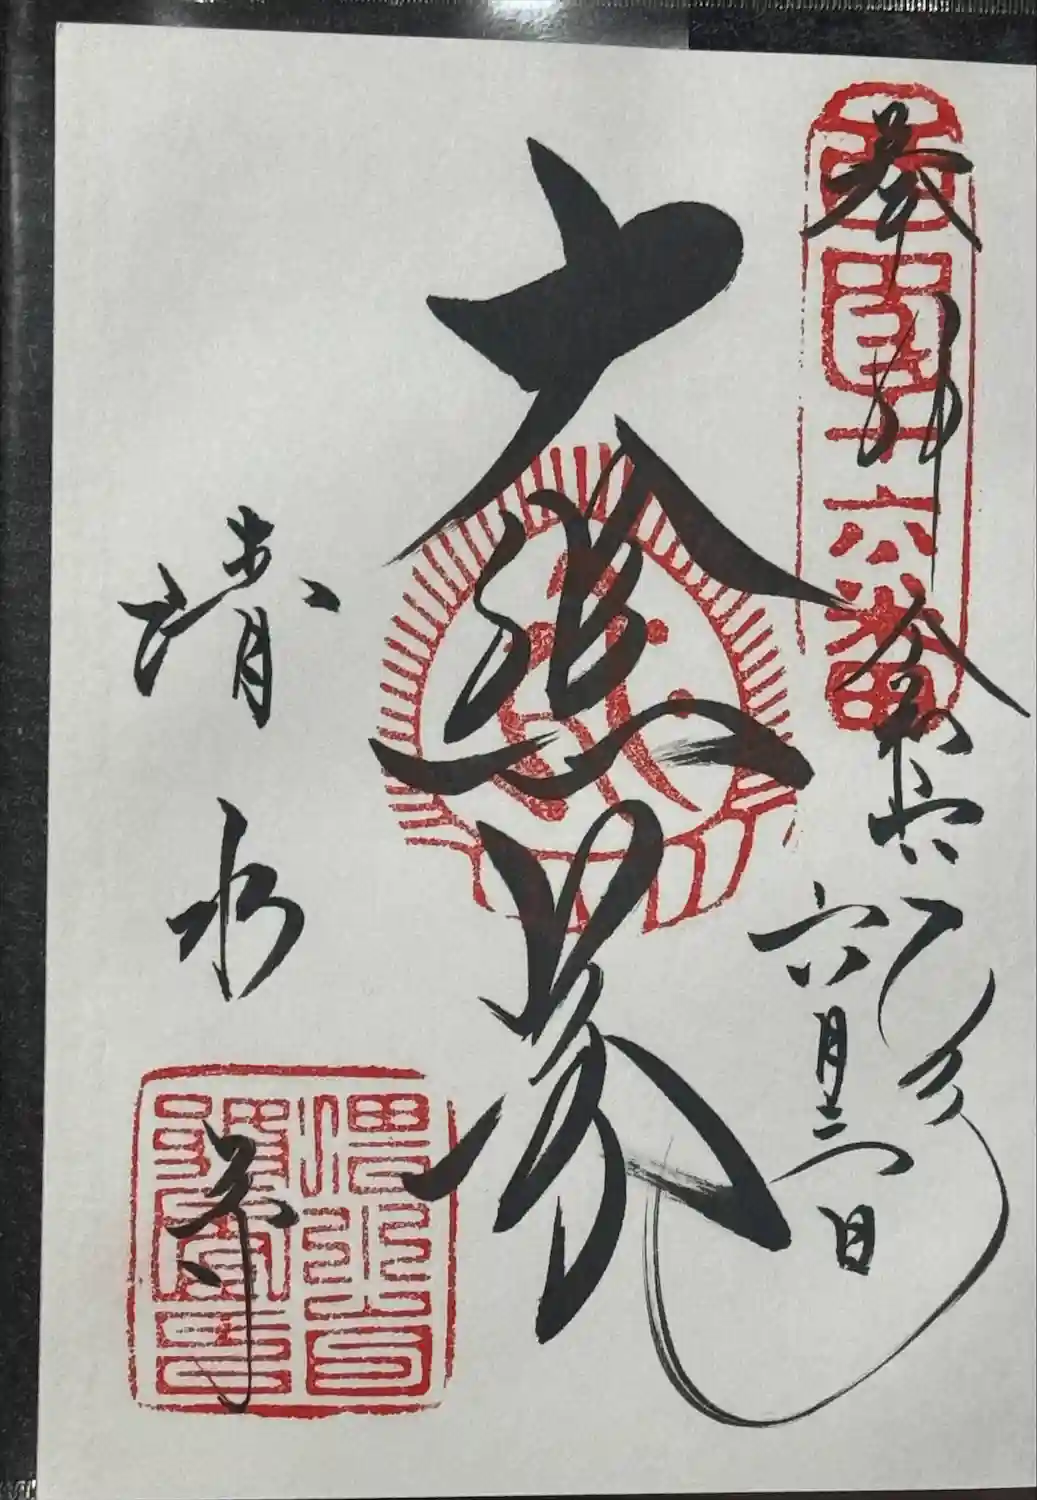 西国十六番
奉拝
令和六年
六月三日
大悲閣
清水寺